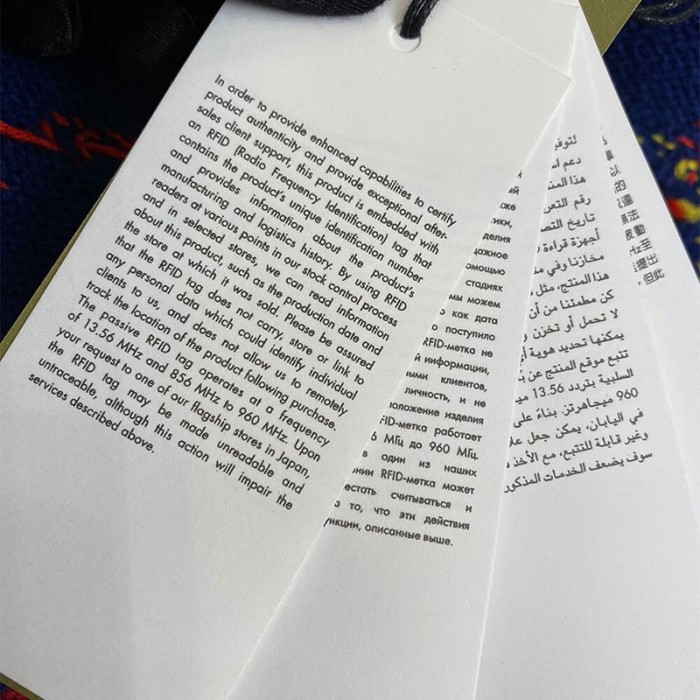 In order to provide enhanced capabilities to certify
product authenticity and provide exceptional after-
sales client support, this product is embedded with
an RFID (Radio Frequency Identification) tag that
contains the product's unique identification number
and provides information about the product's
manufacturing and logistics history. By using RFID
readers at various points in our stock control process
and in selected stores, we can read information
about this product, such as the production date and
the store at which it was sold. Please be assured
that the RFID tag does not carry, store or link to
any personal data which could identify individual
clients to us, and does not allow us to remotely
track the location of the product following purchase.
The passive RFID tag operates at a frequency
of 13.56 MHz and 856 MHz to 960 MHz. Upon
your request to one of our flagship stores in Japan,
the RFID tag may be made unreadable and
untraceable, although this action will impair the
services described above.
делия
ажное
омощью
стадиях
мы можем
о как дата
о поступило
RFID-метка не
й информации,
ыми клиентов,
личность, и не
оложение изделия
FID-метка работает
6 МГц до 960 МГц.
в один из наших
нии RFID-метка может
естать считываться и
а то, что эти действия
ункции, описанные выше.
لتوفي
دعم
هذا المنت
رقم التعر
تاريخ التص
أجهزة قراءة
مخازننا وفي
هذا المنتج، مثل
كن مطمئنا من أن
لا تحمل أو تخزن
يمكنها تحديد هوية
تتبع موقع المنتج عن
السلبية بتردد 13.56
960 ميجاهرتز. بناءً على
في اليابان، يمكن جعل
وغير قابلة للتتبع، مع الأخذ
سوف يضعف الخدمات المذكور
以
的
無法
至
提出
，但此